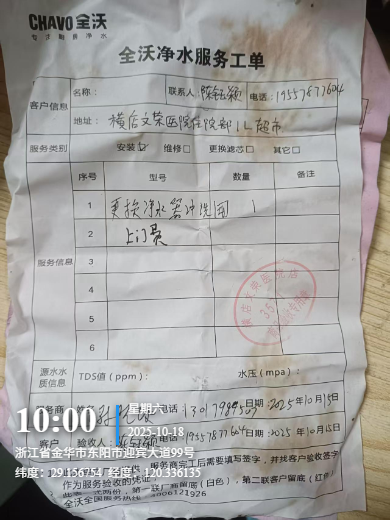 CHAVO 全沃
专注厨房净水
全沃净水服务工单
客户信息
名称：
联系人：
电话：19557877604
地址：横店文荣医院住院部1L超市
服务类别
安装 维修 更换滤芯 其它
服务信息
序号 型号 数量 备注
1 更换净水器冲洗阀 1
2 上门费
3
4
5
6
源水水质信息
TDS值（ppm）： 水压（mpa）：
电话 日期：2025年10月15日
客户 验收人： 电话 19557877604 日期：2025年10月15日
10:00
星期六
2025-10-18
浙江省金华市东阳市迎宾大道99号
服务商完工后需要填写签字，并找客户验收签字
作为服务验收的凭证。
纬度：29.156754 经度：120.336135
第一联厂商留底（白色），第二联客户留底（红色）
全沃全国服务热线：4006121926